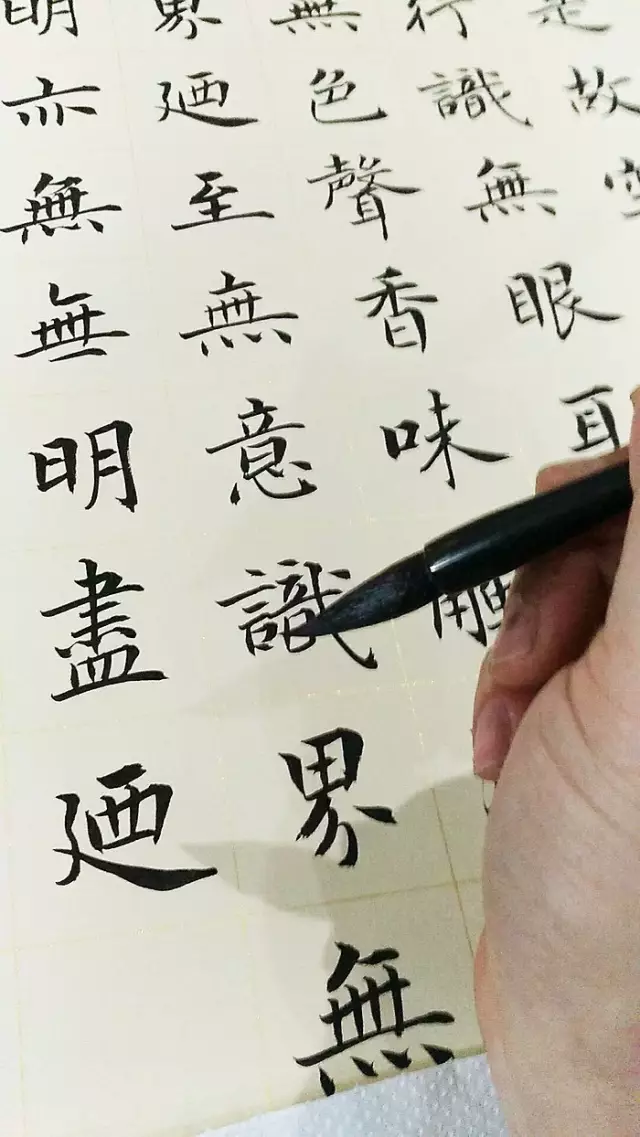 是故空
行識無眼耳
無色聲香味觸
界廼至無意識界無
明亦無無明盡廼